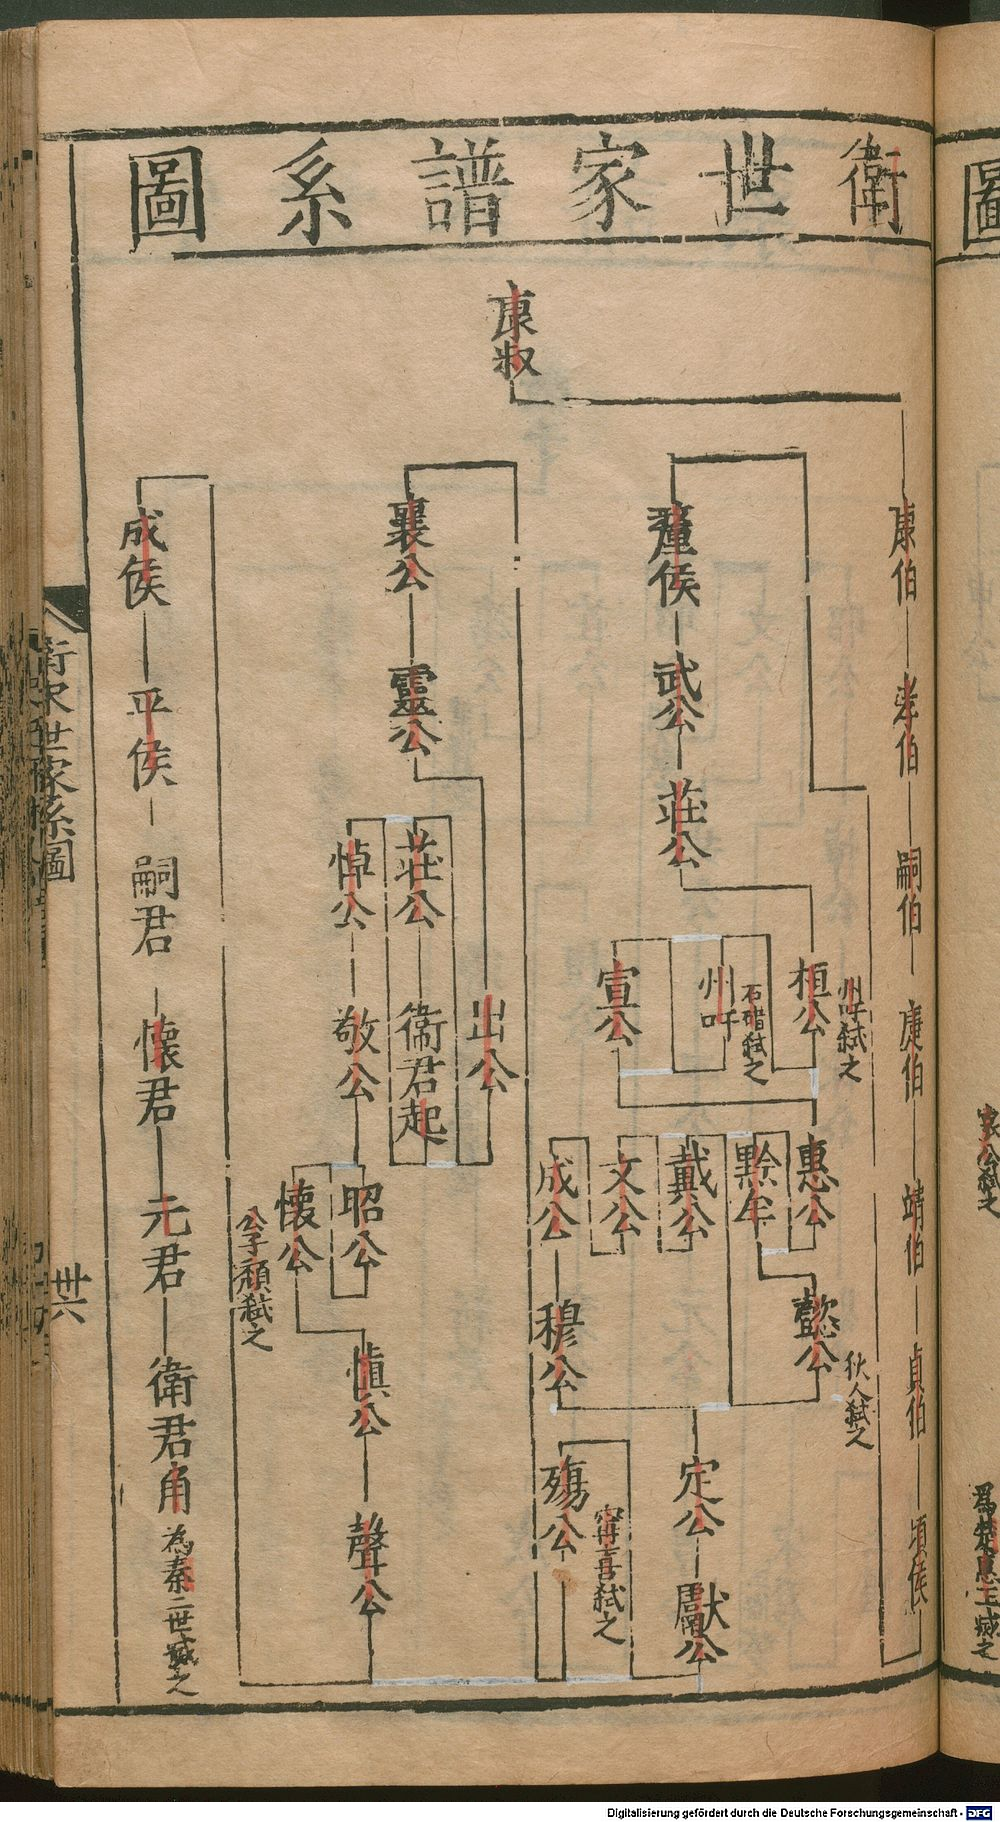 衛世家譜系圖
康叔
康伯
孝伯
嗣伯
㨗伯
靖伯
貞伯
頃侯
釐侯
武公
莊公
桓公
州吁弒之
州吁
石碏弒之
宣公
惠公
黔牟
戴公
文公
成公
懿公
狄人弒之
穆公
定公
獻公
殤公
甯喜弒之
襄公
靈公
出公
莊公
衛君起
悼公
敬公
昭公
懷公
公子頹弒之
慎公
聲公
成侯
平侯
嗣君
懷君
元君
衛君角
為秦二世滅之
衛世家系圖
卅六
圖
哀公弒之
為楚惠王滅之
Digitalisierung gefördert durch die Deutsche Forschungsgemeinschaft - DFG